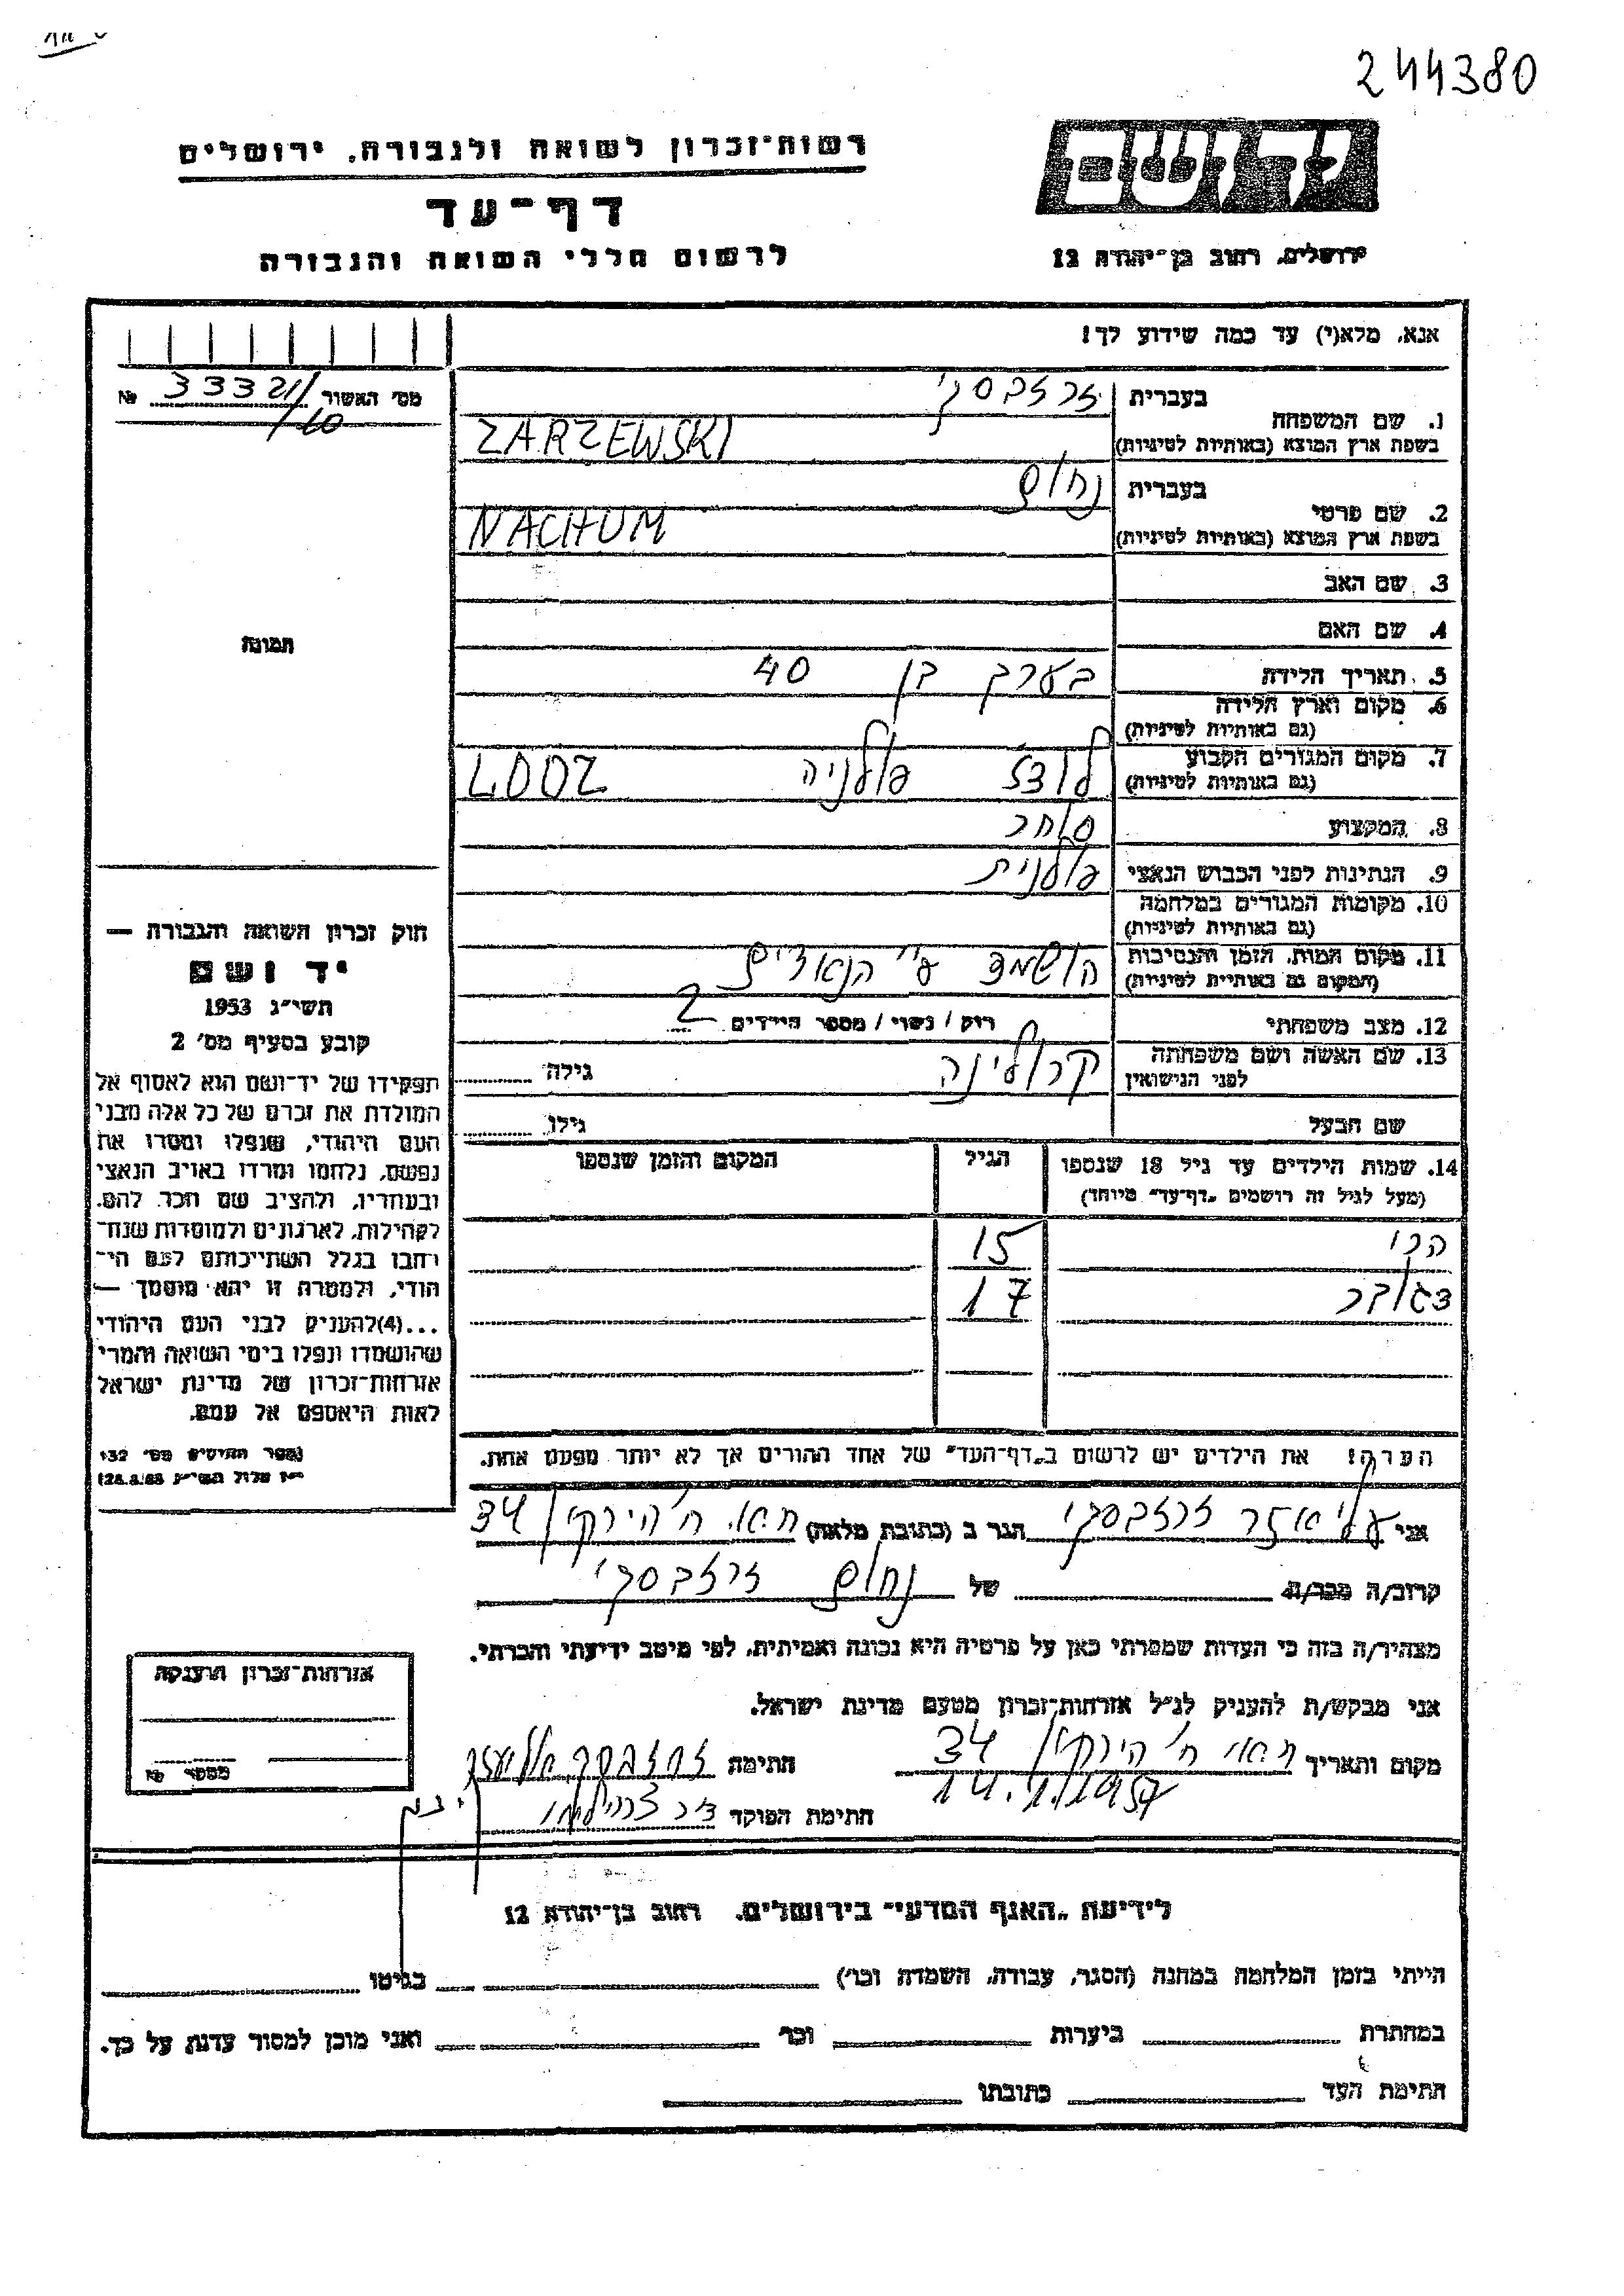 244380
רשות־זכרון לשואה ולגבורה, ירושלים
דף־עד
לרשום חללי השואה והגבורה
יד ושם
ירושלים, רחוב בן־יהודה 12
אנא, מלא(י) עד כמה שידוע לך!
מס׳ האשור 33321/10 №
1. שם המשפחה
בעברית זרזבסקי
בשפת ארץ המוצא (באותיות לטיניות) ZARZEWSKI
2. שם פרטי
בעברית נחום
בשפת ארץ המוצא (באותיות לטיניות) NACHUM
3. שם האב
4. שם האם
5. תאריך הלידה בערך בן 40
6. מקום וארץ הלידה
(גם באותיות לטיניות)
7. מקום המגורים הקבוע לודז פולניה LODZ
(גם באותיות לטיניות)
8. המקצוע סוחר
9. הנתינות לפני הכבוש הנאצי פולנית
10. מקומות המגורים במלחמה
(גם באותיות לטיניות)
11. מקום המות, הזמן והנסיבות הושמד ע״י הנאצים
(המקום גם באותיות לטיניות)
12. מצב משפחתי רוק / נשוי / מספר הילדים 2
13. שם האשה ושם משפחתה קרולינה גילה
לפני הנישואין
שם הבעל גילו
14. שמות הילדים עד גיל 18 שנספו הגיל המקום והזמן שנספו
(מעל לגיל זה רושמים „דף־עד״ מיוחד)
15
17
תמונה
חוק זכרון השואה והגבורה —
יד ושם
תשי״ג 1953
קובע בסעיף מס׳ 2
תפקידו של יד־ושם הוא לאסוף אל
המולדת את זכרם של כל אלה מבני
העם היהודי, שנפלו ומסרו את
נפשם, נלחמו ומרדו באויב הנאצי
ובעוזריו, ולהציב שם וזכר להם,
לקהילות, לארגונים ולמוסדות שנח־
רבו בגלל השתייכותם לעם הי־
הודי, ולמטרה זו יהא מוסמך —
...(4)להעניק לבני העם היהודי
שהושמדו ונפלו בימי השואה והמרי
אזרחות־זכרון של מדינת ישראל
לאות היאספם אל עמם.
הערה! את הילדים יש לרשום ב„דף־העד״ של אחד ההורים אך לא יותר מפעם אחת.
אני זרזבסקי הגר ב (כתובת מלאה) ת״א, ח׳ הירקון 34
קרוב/ה מכר/ה של נחום זרזבסקי
מצהיר/ה בזה כי העדות שמסרתי כאן על פרטיה היא נכונה ואמיתית, לפי מיטב ידיעתי והכרתי.
אני מבקש/ת להעניק לנ״ל אזרחות־זכרון מטעם מדינת ישראל.
מקום ותאריך ח׳ הירקון 34 חתימה
14.1.1957
חתימת הפוקד
אזרחות־זכרון הוענקה
מספר №
לידיעת „האגף המדעי״ בירושלים, רחוב בן־יהודה 12
הייתי בזמן המלחמה במחנה (הסגר, עבודה, השמדה וכו׳) בגיטו
במחתרת ביערות וכו׳ ואני מוכן למסור עדות על כך.
חתימת העד כתובתו